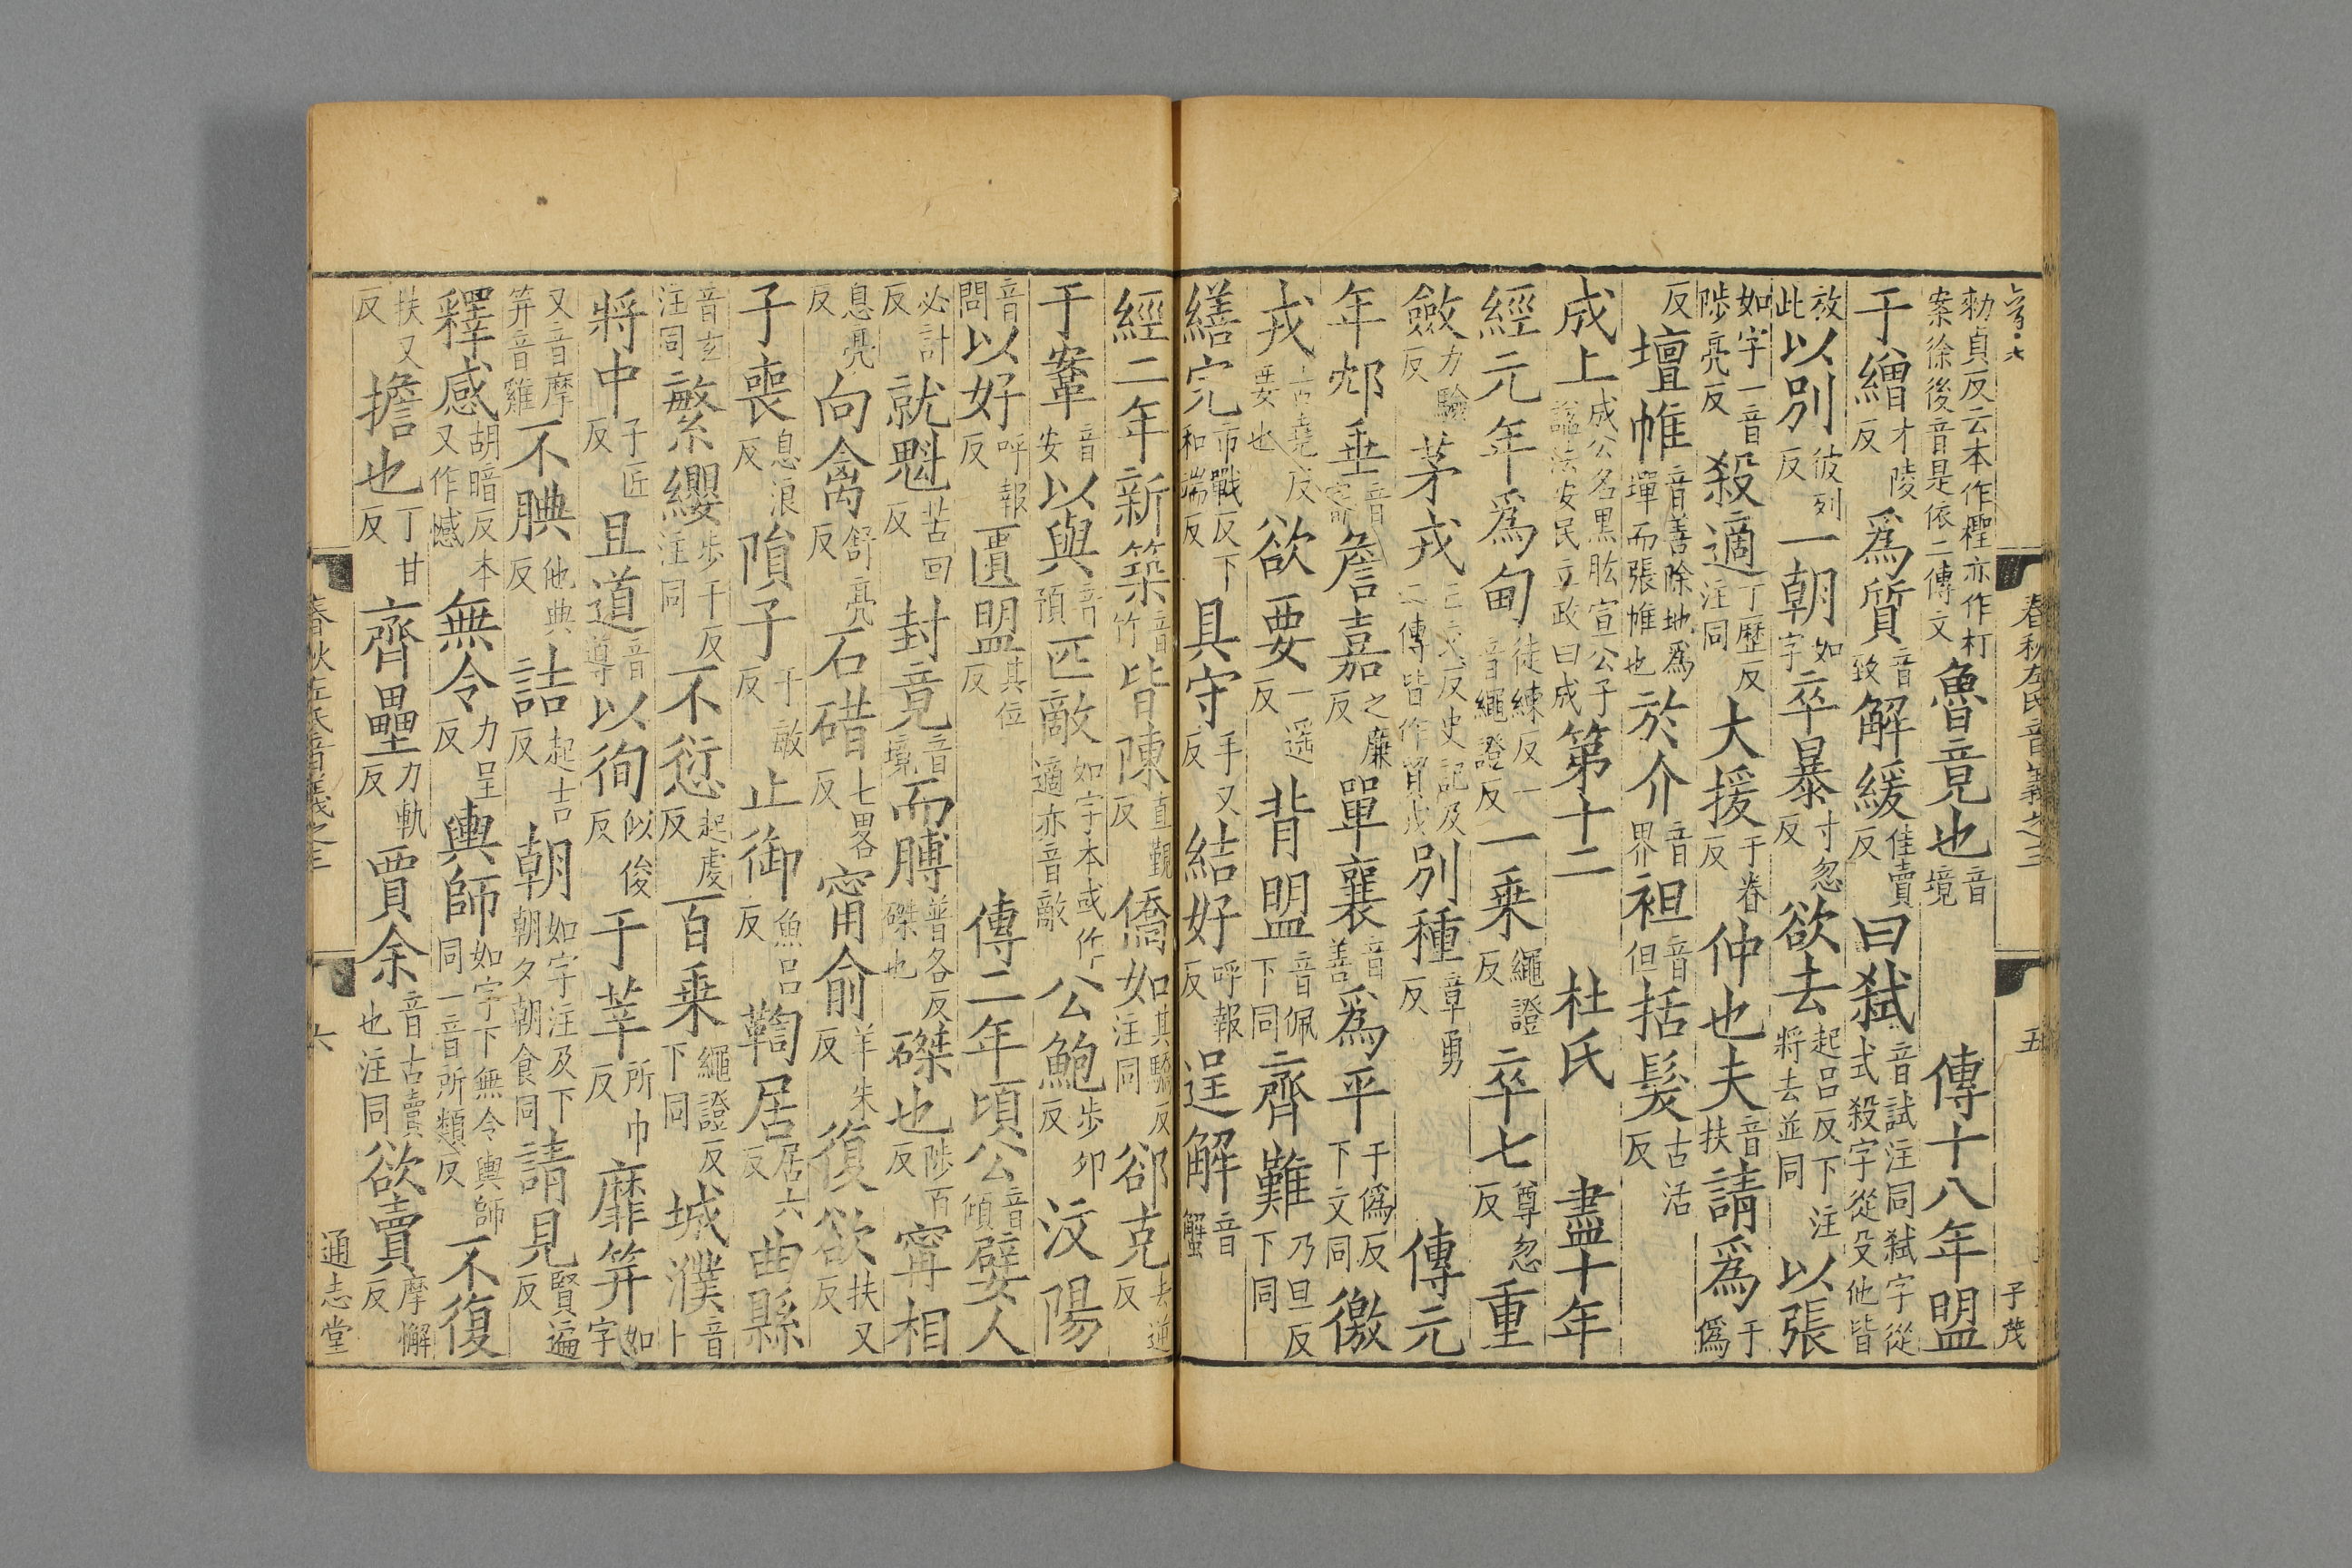 春秋左氏音義之三 五 子茂
勑貞反云本作檉亦作朾案徐後音是依二傳文 魯竟也音境 傳十八年盟
于繒才陵反 爲質音致 解緩佳賣反 曰弒音試注同弒字從式殺字從殳他皆
放此 以別彼列反 一朝如字 卒暴寸忽反 欲去起呂反下注將去並同 以張
如字一音陟亮反 殺適丁歷反注同 大援于眷反 仲也夫音扶 請爲于僞
反 壇帷音善除地爲墠而張帷也 於介音界 袒音但 括髮古活反
成上成公名黑肱宣公子謚法安民立政曰成 第十二 杜氏 盡十年
經元年爲甸徒練反一音繩證反 一乗繩證反 卒七尊忽反 重
斂力驗反 茅戎亡交反史記及二傳皆作貿戎 別種章勇反 傳元
年邥垂音審 詹嘉之廉反 單襄音善 爲平于僞反下文同 徼
戎古堯反要也 欲要一遥反 背盟音佩下同 齊難乃旦反下同
繕完市戰反下和端反 具守手又反 結好呼報反 逞解音蟹
經二年新築音竹 皆陳直覲反 僑如其驕反注同 郤克去逆反
于鞌音安 以與音預 匹敵如字本或作適亦音敵 公鮑步卯反 汶陽
音問 以好呼報反 匱盟其位反 傳二年頃公音傾 嬖人
必計反 就魁苦回反 封竟音境 而膊普各反磔也 磔也陟百反 甯相
息亮反 向禽舒亮反 石碏七畧反 甯俞羊朱反 復欲扶又反
子喪息浪反 隕子于敏反 止御魚呂反 鞫居居六反 曲縣
音玄注同 繁纓步干反注同 不愆起虔反 百乗繩證反下同 城濮音卜
將中子匠反 且道音導 以徇似俊反 于莘所巾反 靡筓如字
又音摩筓音雞 不腆他典反 詰起吉反 朝如字注及下朝夕朝食同 請見賢遍反
釋感胡暗反本又作憾 無令力呈反 輿師如字下無令輿師同一音所類反 不復
扶又反 擔也丁甘反 齊壘力軌反 賈余音古賣也注同 欲賣摩懈反
春秋左氏音義之三 六 通志堂